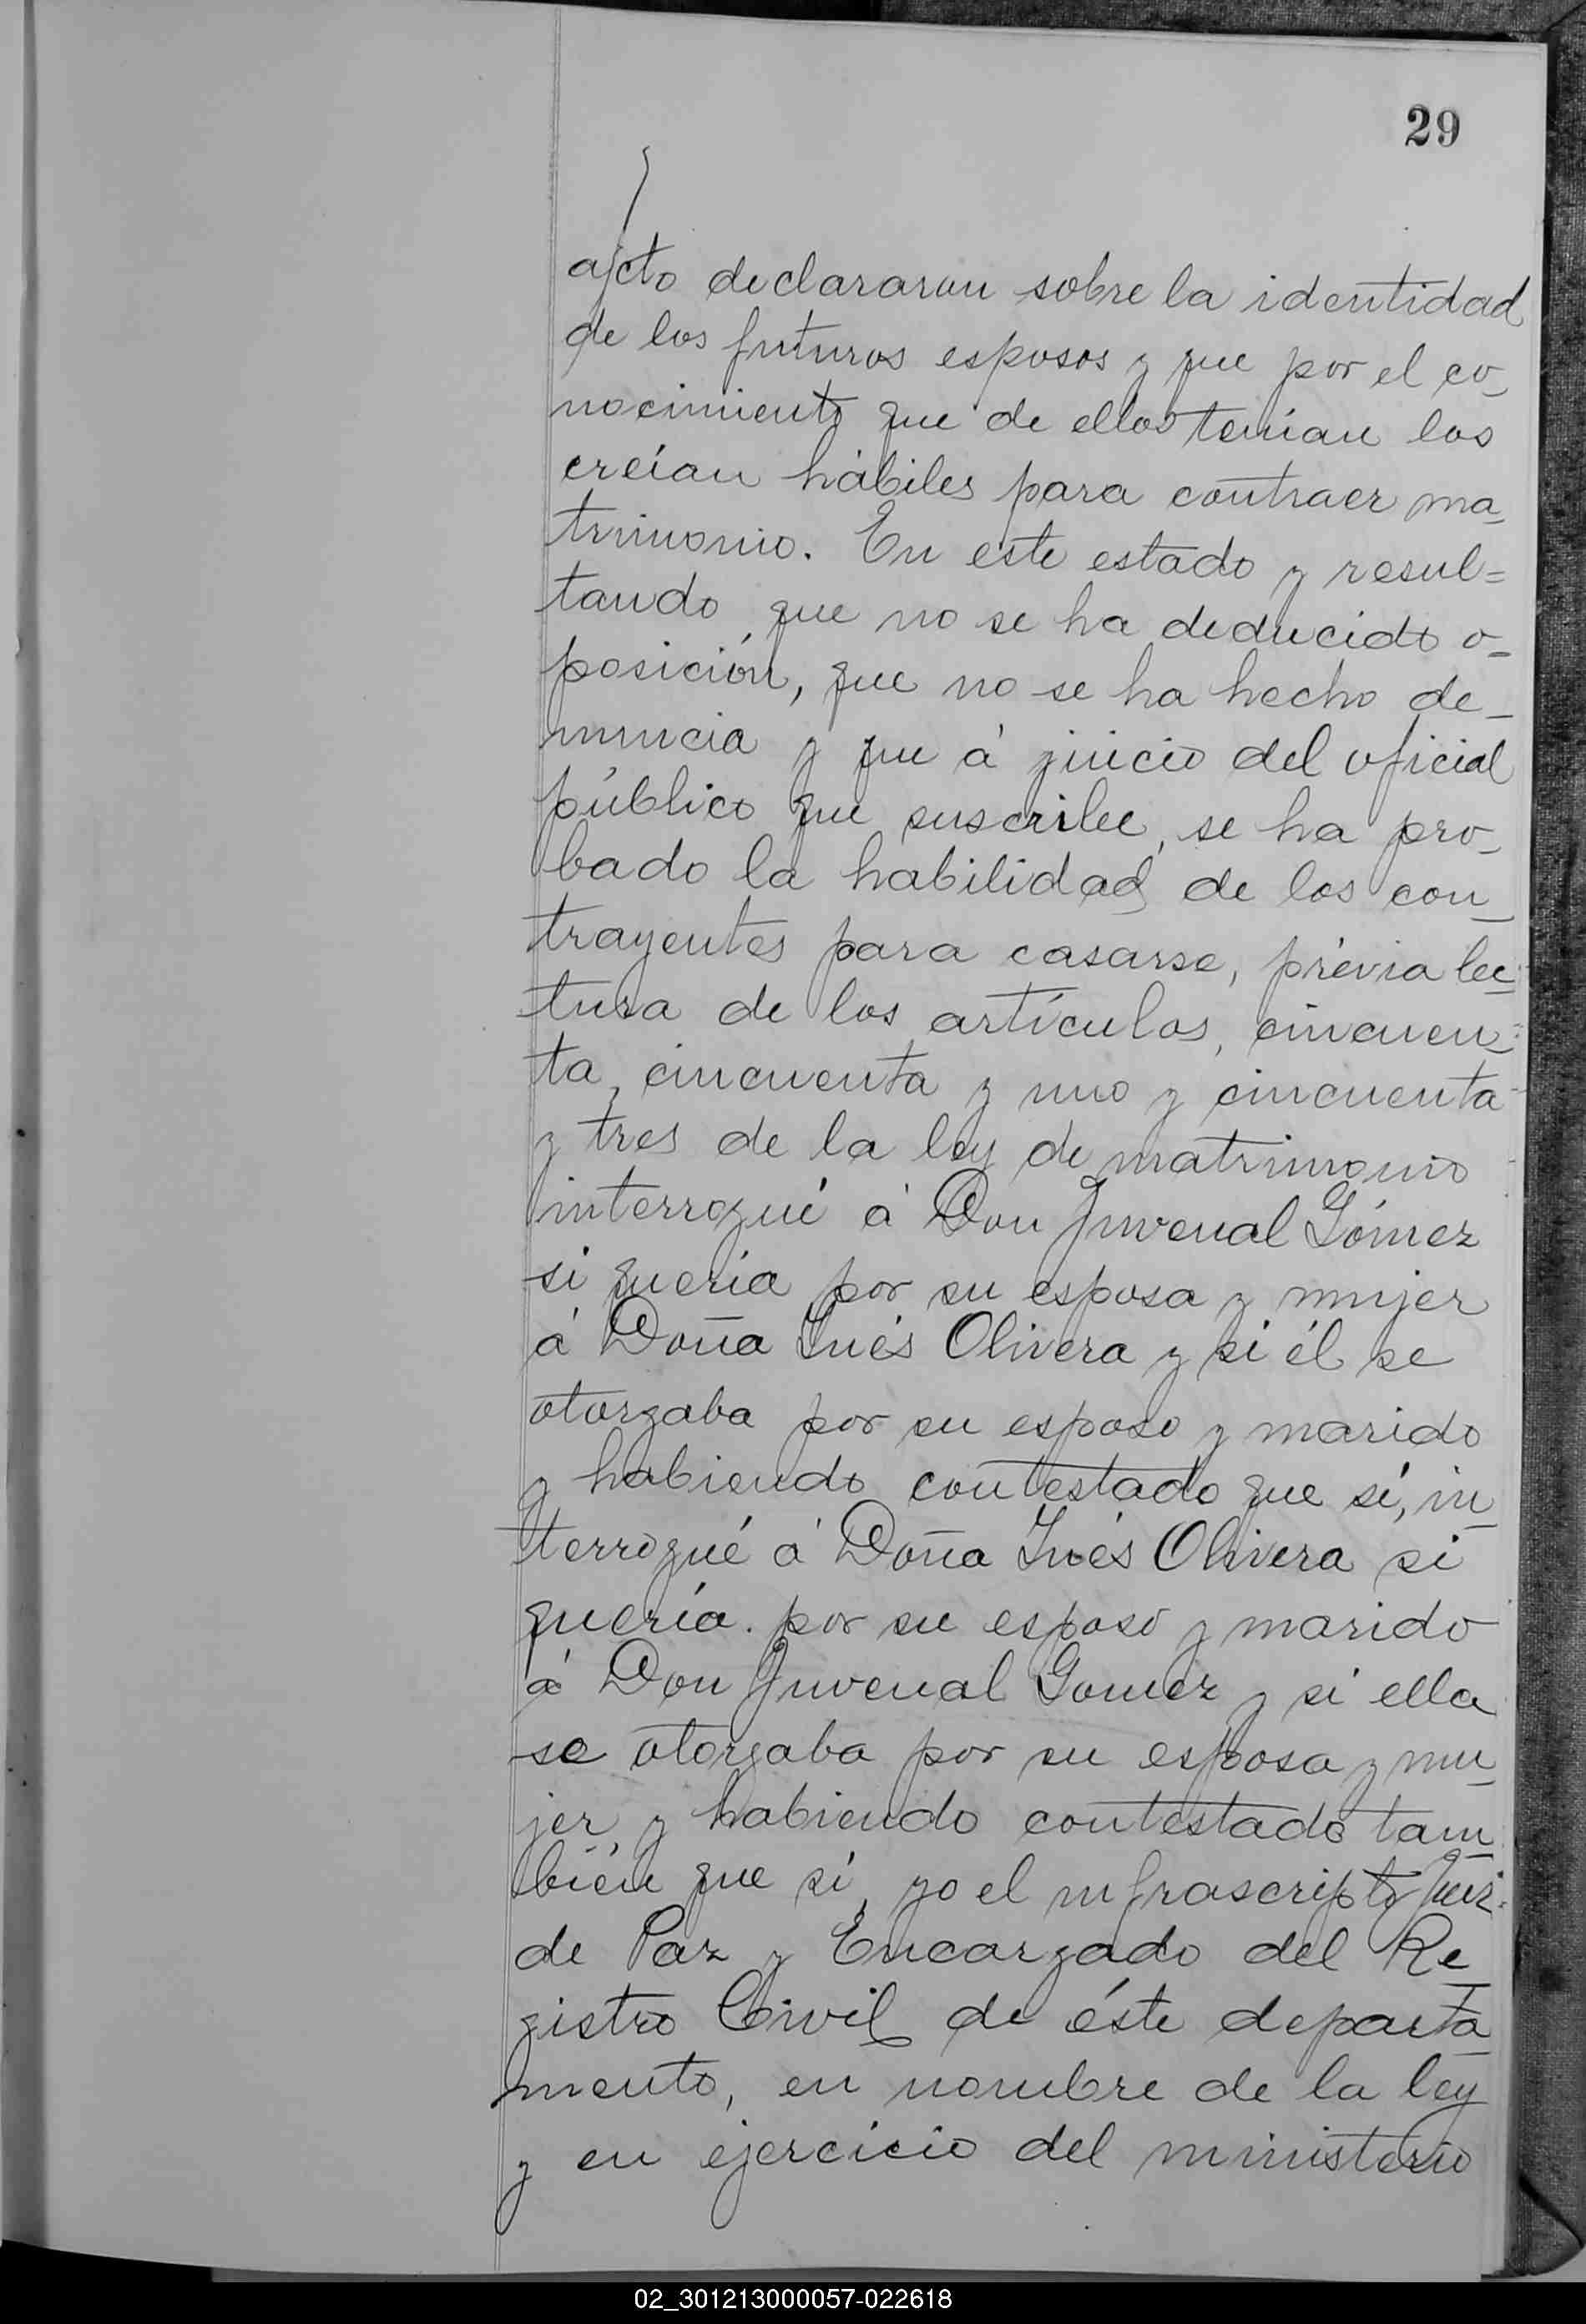 29
acto declararon sobre la identidad
de los futuros esposos y que por el co_
nocimiento que de ellos tenían los
creían hábiles para contraer ma_
trimonio. En este estado y resul=
tando que no se ha deducido o_
posición, que no se ha hecho de_
nuncia y que á juicio del oficial
público que suscribe, se ha pro_
bado la habilidad de los con_
trayentes para casarse, prévia lec_
tura de los artículos, cincuen_
ta, cincuenta y uno y cincuenta
y tres de la ley de matrimonio
interrogué á Don Juvenal Gómez
si quería por su esposa y mujer
á Doña Inés Olivera y si él se
otorgaba por su esposo y marido
y habiendo contestado que sí, in_
terrogué á Doña Inés Olivera si
quería por su esposo y marido
á Don Juvenal Gomez y si ella
se otorgaba por su esposa y mu_
jer, y habiendo contestado tam_
bién que sí, yo el infrascripto Juez
de Paz y Encargado del Re_
gistro Civil de éste departa_
mento, en nombre de la ley
y en ejercicio del ministerio
02_301213000057-022618